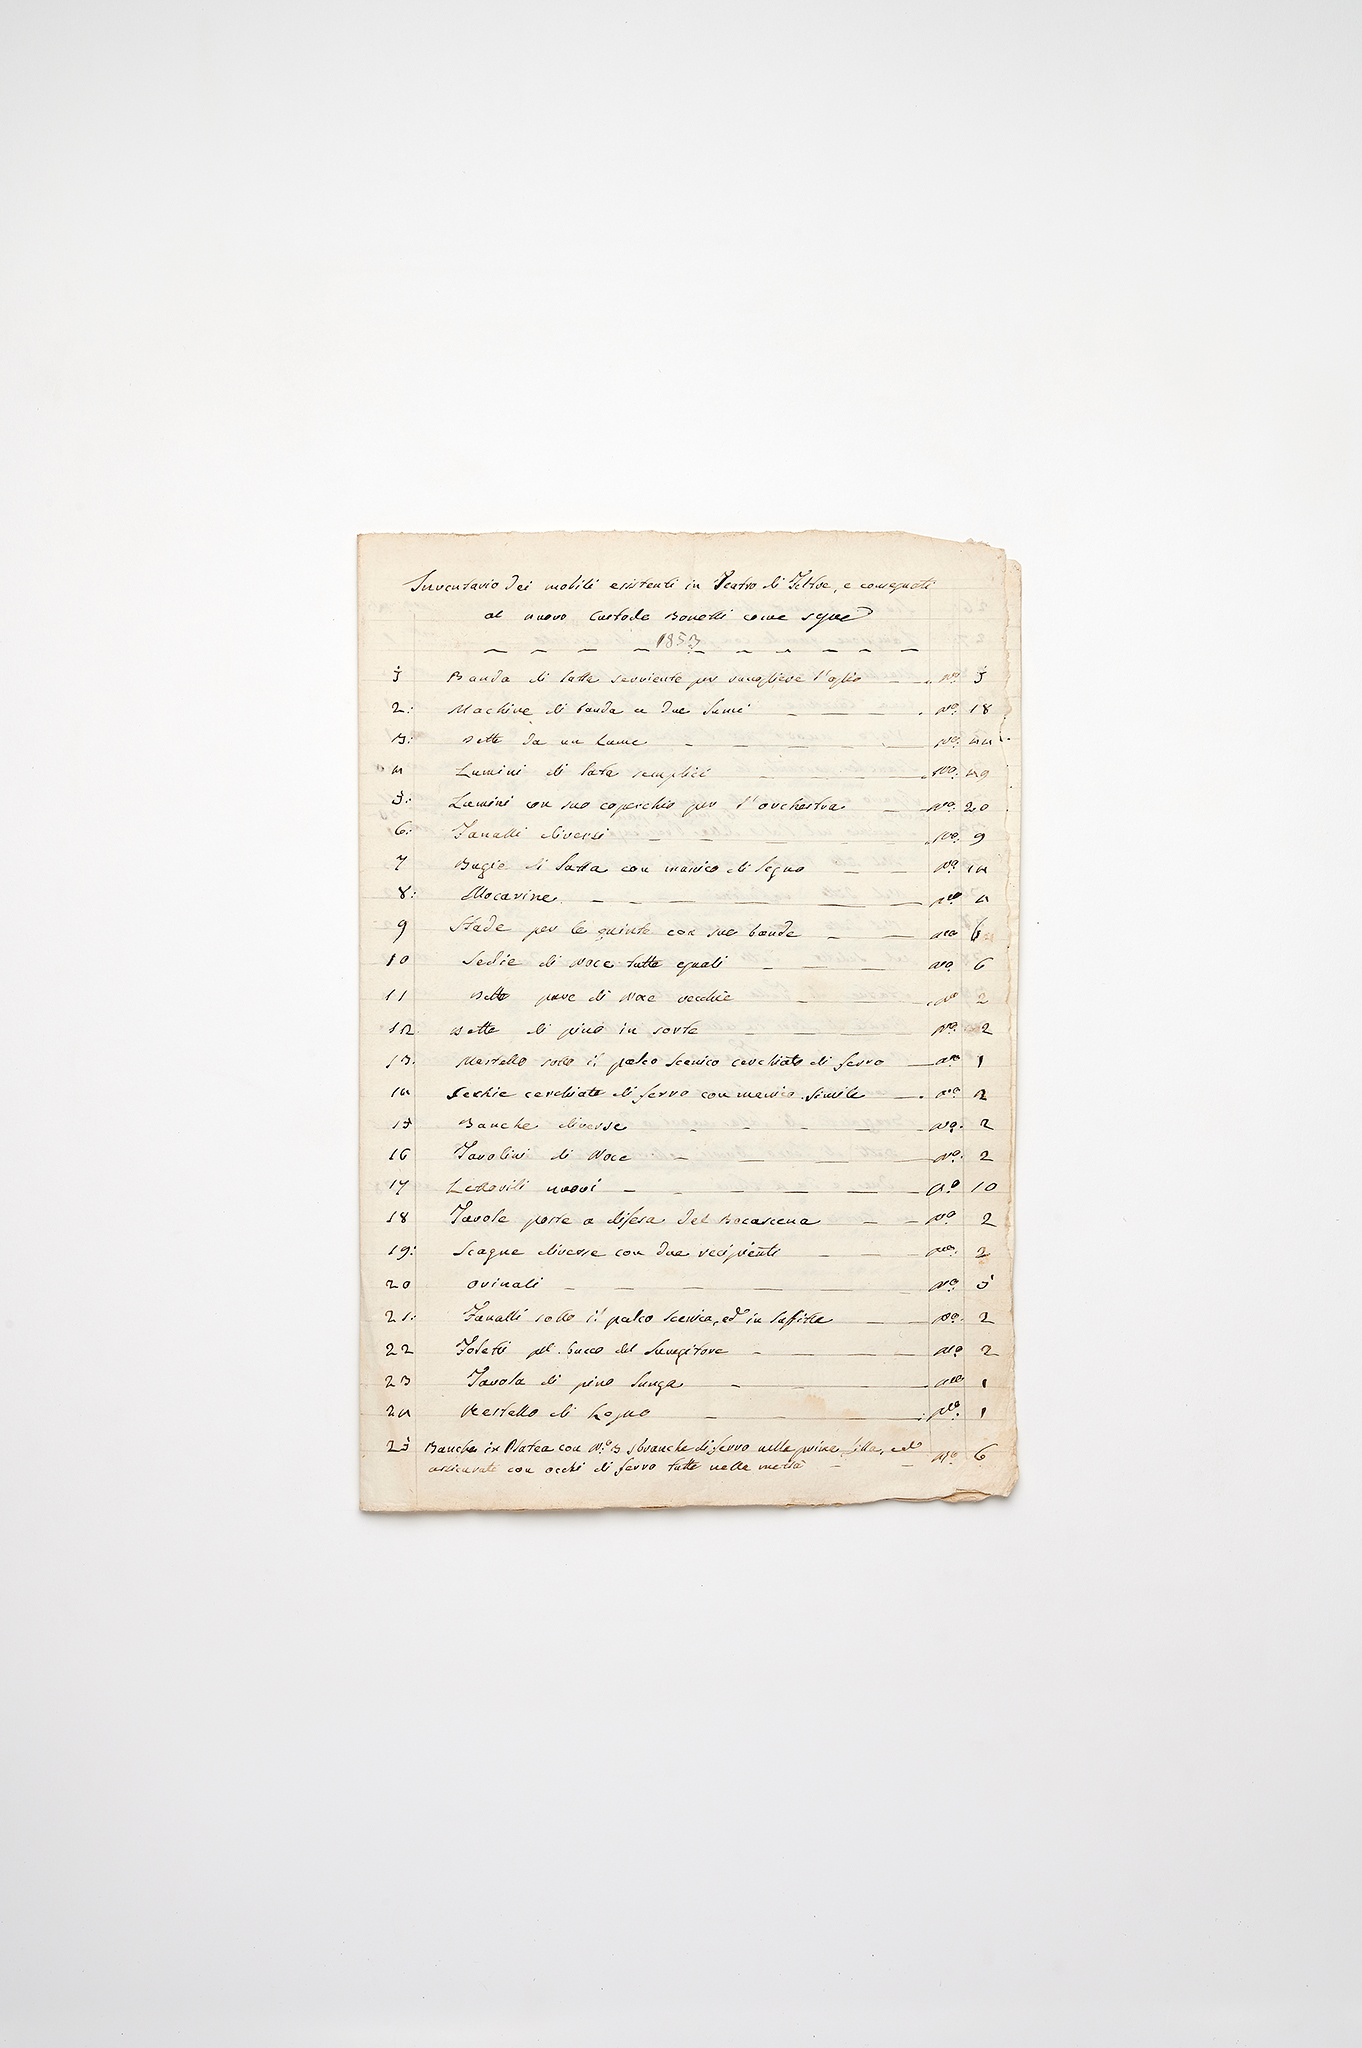 Inventario dei mobili esistenti in Teatro di Feltre, e consegnati
al nuovo Custode Bonetti come segue
1853
Banda di latta serviente per racogliere l'oglio n.o
2: Machine di banda a due lumi n.o 18
3: dette da un Lume n.o 44
4 Lumini di lata semplici n.o 49
5: Lumini con suo coperchio per l'orchestra n.o 20
6: Fanalli diversi n.o 9
7 Bugie di latta con manico di legno n.o 14
8: Mocarine n.o 4
9 Stade per le quinte con sue bande n.o 6
10 Sedie di Noce tutte equali n.o 6
11 dette pure di Noce vecchie n.o 2
12 dette di pino in sorte n.o 2
13. Mastello sotto il palco scenico cerchiato di ferro n.o 1
14 Secchie cerchiate di ferro con manico simile n.o 2
15 Banche diverse n.o 2
16 Tavolini di Noce n.o 2
17 Letorili nuovi n.o 10
18 Tavole poste a difesa del Bocascena n.o 2
19: Scagne diverse con due recipienti n.o 2
20 orinali n.o 5
21: Fanalli sotto il palco scenico, ed in soffitte n.o 2
22 Foletti pel bucco del Sugeritore n.o 2
23 Tavola di pino lunga n.o 1
24 Restello di Legno n.o 1
25 Banche in Platea con N.o 3 sbranche di ferro nella prima filla, ed
assicurate con occhi di ferro tutte nella metà n.o 6